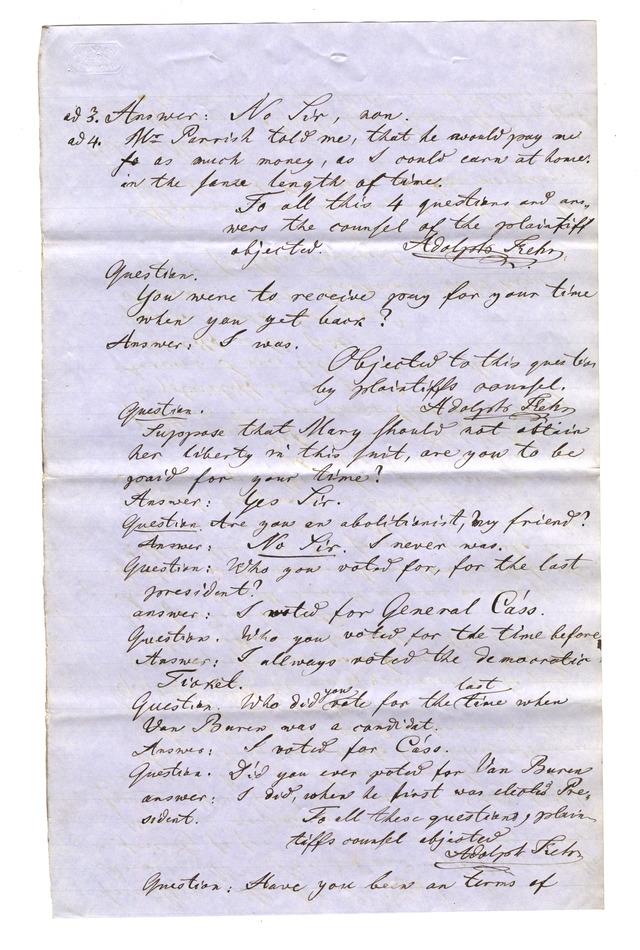 ad 3. Answer: No Sir, non.
ad 4. Mr Parrish told me, that he would pay me
as much money, as I could earn at home.
in the same length of time.
To all this 4 questions and ans-
wers the counsel of the plaintiff
objected. Adolph
Question.
You were to receive pay for your time
when you get back?
Answer: I was.
Objected to this question
by plaintiffs counsel.
Adolph
Question.
Suppose that Mary should not obtain
her liberty in this suit, are you to be
paid for your time?
Answer: Yes Sir.
Question. Are you an abolitionist, my friend?
Answer: No Sir. I never was.
Question: Who you voted for, for the last
president?
answer: I voted for General Cass.
Question. Who you voted for the time before
Answer: I allways voted the democratic
Ticket.
Question. Who did you vote for the last time when
Van Buren was a candidat.
Answer: I voted for Cass.
Question. Did you ever voted for Van Buren
answer: I did, when he first was elected Pre-
sident.
To all these questions, plain-
tiffs counsel objected
Adolph
Question: Have you been on terms of